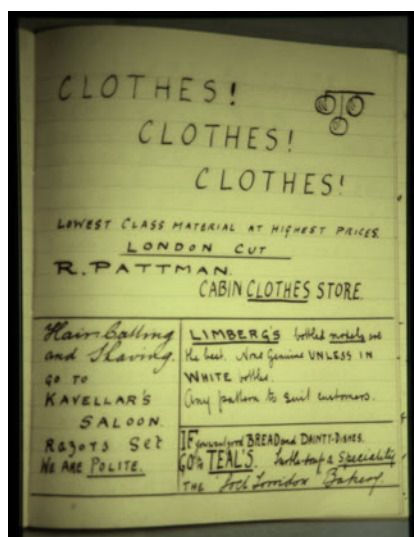 CLOTHES!
CLOTHES!
CLOTHES!
LOWEST CLASS MATERIAL AT HIGHEST PRICES.
LONDON CUT
R. PATTMAN.
CABIN CLOTHES STORE.
Hair Cutting
and Shaving.
GO TO
KAVELLAR'S
SALOON.
Razors Set
WE ARE POLITE.
LIMBERG'S bottled models are
the best. None Genuine UNLESS IN
WHITE bottles.
Any pattern to suit customers.
IF you want good BREAD and DAINTY-DISHES.
GO to TEAL'S. Turtle-soup a Speciality
THE Bakery.